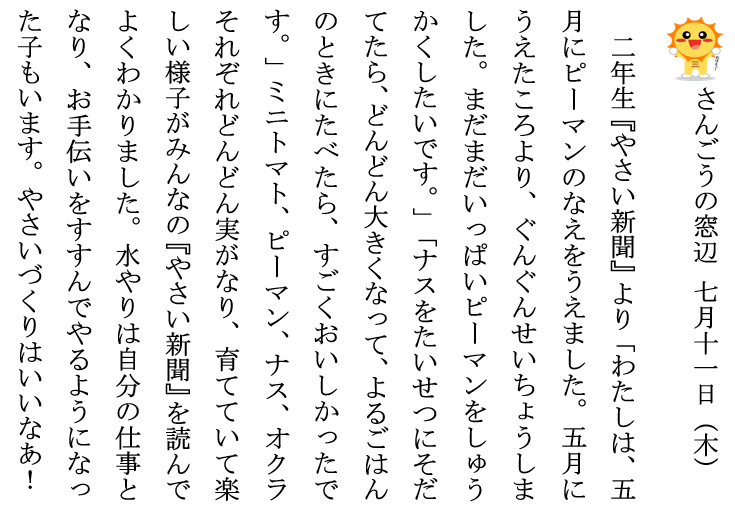 さんごうの窓辺　七月十一日（木）
　二年生『やさい新聞』より「わたしは、五
月にピーマンのなえをうえました。五月に
うえたころより、ぐんぐんせいちょうしま
した。まだまだいっぱいピーマンをしゅう
かくしたいです。」「ナスをたいせつにそだ
てたら、どんどん大きくなって、よるごはん
のときにたべたら、すごくおいしかったで
す。」ミニトマト、ピーマン、ナス、オクラ
それぞれどんどん実がなり、育てていて楽
しい様子がみんなの『やさい新聞』を読んで
よくわかりました。水やりは自分の仕事と
なり、お手伝いをすすんでやるようになっ
た子もいます。やさいづくりはいいなあ！